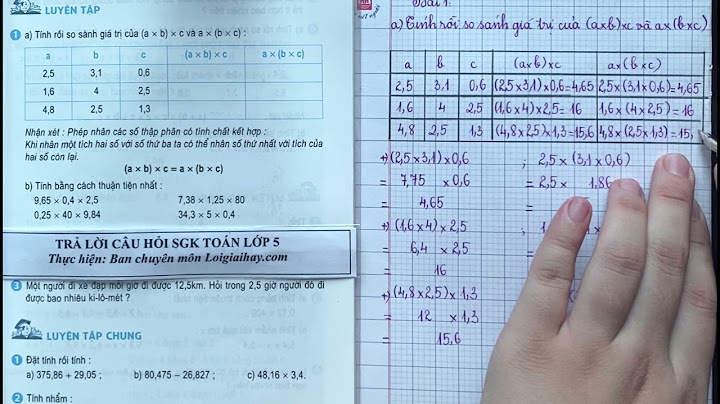 LUYỆN TẬP
1 a) Tính rồi so sánh giá trị của (a × b) × c và a × (b × c) :
a b c (a × b) × c a × (b × c)
2,5 3,1 0,6
1,6 4 2,5
4,8 2,5 1,3
Nhận xét : Phép nhân các số thập phân có tính chất kết hợp :
Khi nhân một tích hai số với số thứ ba ta có thể nhân số thứ nhất với tích của
hai số còn lại.
(a × b) × c = a × (b × c)
b) Tính bằng cách thuận tiện nhất :
9,65 × 0,4 × 2,5 7,38 × 1,25 × 80
0,25 × 40 × 9,84 34,3 × 5 × 0,4
TRẢ LỜI CÂU HỎI SGK TOÁN LỚP 5
Thực hiện: Ban chuyên môn Loigiaihay.com
3 Một người đi xe đạp mỗi giờ đi được 12,5km. Hỏi trong 2,5 giờ người đó đi
được bao nhiêu ki-lô-mét ?
LUYỆN TẬP CHUNG
1 Đặt tính rồi tính :
a) 375,86 + 29,05 ; b) 80,475 – 26,827 ; c) 48,16 × 3,4.
2 Tính nhẩm :
Bài 1:
a) Tính rồi so sánh giá trị của (a×b)×c và a×(b×c)
a b c (a×b)×c a×(b×c)
2,5 3,1 0,6 (2,5×3,1)×0,6=4,65 2,5×(3,1×0,6)=4,65
1,6 4 2,5 (1,6×4)×2,5=16 1,6×(4×2,5)=16
4,8 2,5 1,3 (4,8×2,5)×1,3=15,6 4,8×(2,5×1,3)=15,
+) (2,5×3,1)×0,6 ; 2,5×(3,1×0,6)
= 7,75 × 0,6 = 2,5 × 1,86
= 4,65 =
+) (1,6×4)×2,5 ;
= 6,4 × 2,5 =
= 16 =
+) (4,8×2,5)×1,3
= 12 × 1,3
= 15,6